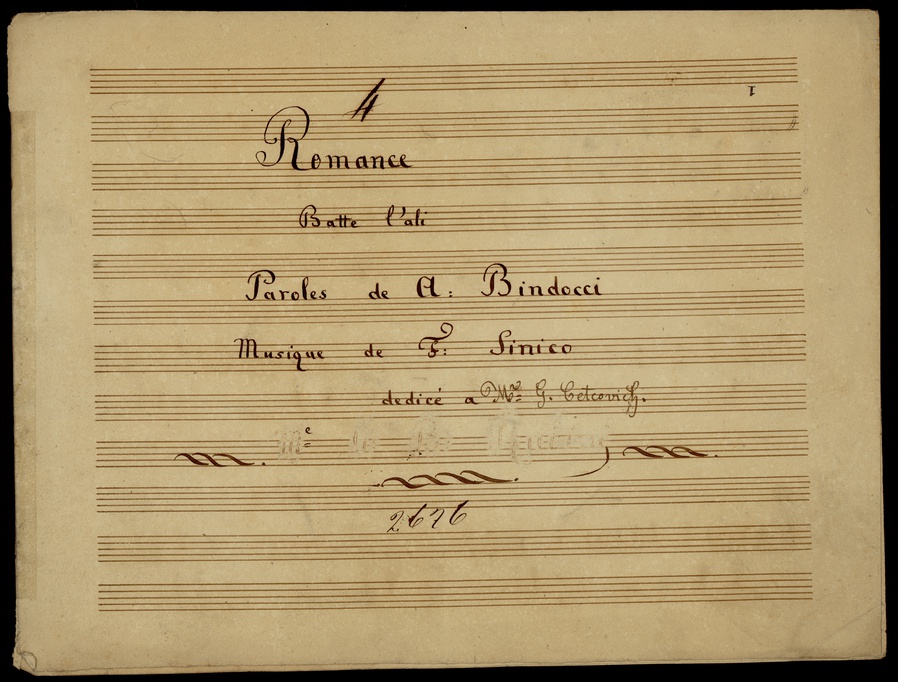 4
I
Romance
Batte l'ali
Paroles de A: Bindocci
Musique de F: Sinico
dedicé a Mr G. Cetcovich.
Me
2626